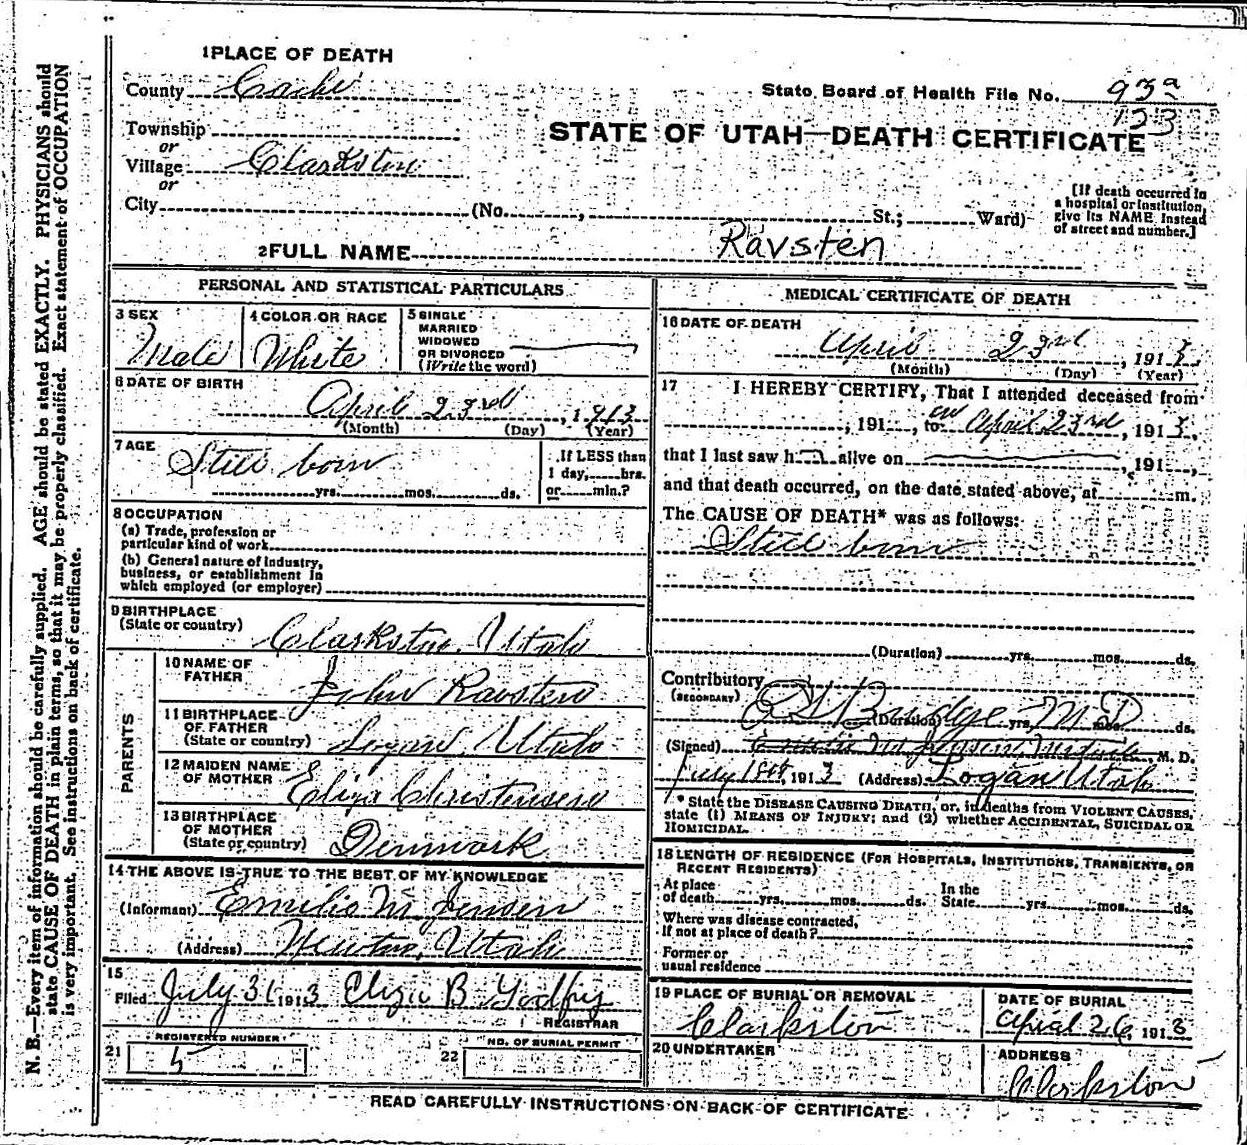 1 PLACE OF DEATH
County Cache
State Board of Health File No. 93a
123
Township
or
Village Clarkston
or
City (No. , St.; Ward)
STATE OF UTAH—DEATH CERTIFICATE
[If death occurred in
a hospital or institution,
give its NAME instead
of street and number.]
2 FULL NAME Ravsten
PERSONAL AND STATISTICAL PARTICULARS
3 SEX
Male
4 COLOR OR RACE
White
5 SINGLE
MARRIED
WIDOWED
OR DIVORCED
(Write the word)
6 DATE OF BIRTH
April 23rd, 1913
(Month) (Day) (Year)
7 AGE
Still born
yrs. mos. ds.
If LESS than
1 day, hrs.
or min.?
8 OCCUPATION
(a) Trade, profession or
particular kind of work
(b) General nature of industry,
business, or establishment in
which employed (or employer)
9 BIRTHPLACE
(State or country) Clarkston, Utah
PARENTS
10 NAME OF
FATHER John Ravsten
11 BIRTHPLACE
OF FATHER
(State or country) Logan Utah
12 MAIDEN NAME
OF MOTHER Eliza Christensen
13 BIRTHPLACE
OF MOTHER
(State or country) Denmark
14 THE ABOVE IS TRUE TO THE BEST OF MY KNOWLEDGE
(Informant) Emilie M Jensen
(Address) Newton, Utah
15
Filed July 31 1913 Eliza B Godfry
REGISTRAR
21 REGISTERED NUMBER
5
22 NO. OF BURIAL PERMIT
MEDICAL CERTIFICATE OF DEATH
16 DATE OF DEATH
April 23rd, 1913
(Month) (Day) (Year)
17 I HEREBY CERTIFY, That I attended deceased from
, 191 , to on April 23rd, 1913,
that I last saw h alive on , 191 ,
and that death occurred, on the date stated above, at m.
The CAUSE OF DEATH* was as follows:
Still born
(Duration) yrs. mos. ds.
Contributory
(SECONDARY)
(Duration) yrs. mos. ds.
Budge M D
(Signed) Emilie M Jensen Midwife, M. D.
July 18th, 1913 (Address) Logan Utah
* State the DISEASE CAUSING DEATH, or, in deaths from VIOLENT CAUSES,
state (1) MEANS OF INJURY; and (2) whether ACCIDENTAL, SUICIDAL OR
HOMICIDAL.
18 LENGTH OF RESIDENCE (FOR HOSPITALS, INSTITUTIONS, TRANSIENTS, OR
RECENT RESIDENTS)
At place
of death yrs. mos. ds.
In the
State yrs. mos. ds.
Where was disease contracted,
If not at place of death?
Former or
usual residence
19 PLACE OF BURIAL OR REMOVAL
Clarkston
DATE OF BURIAL
April 26, 1913
20 UNDERTAKER
ADDRESS
Clarkston
READ CAREFULLY INSTRUCTIONS ON BACK OF CERTIFICATE
N. B.—Every item of information should be carefully supplied. AGE should be stated EXACTLY. PHYSICIANS should
state CAUSE OF DEATH in plain terms, so that it may be properly classified. Exact statement of OCCUPATION
is very important. See instructions on back of certificate.